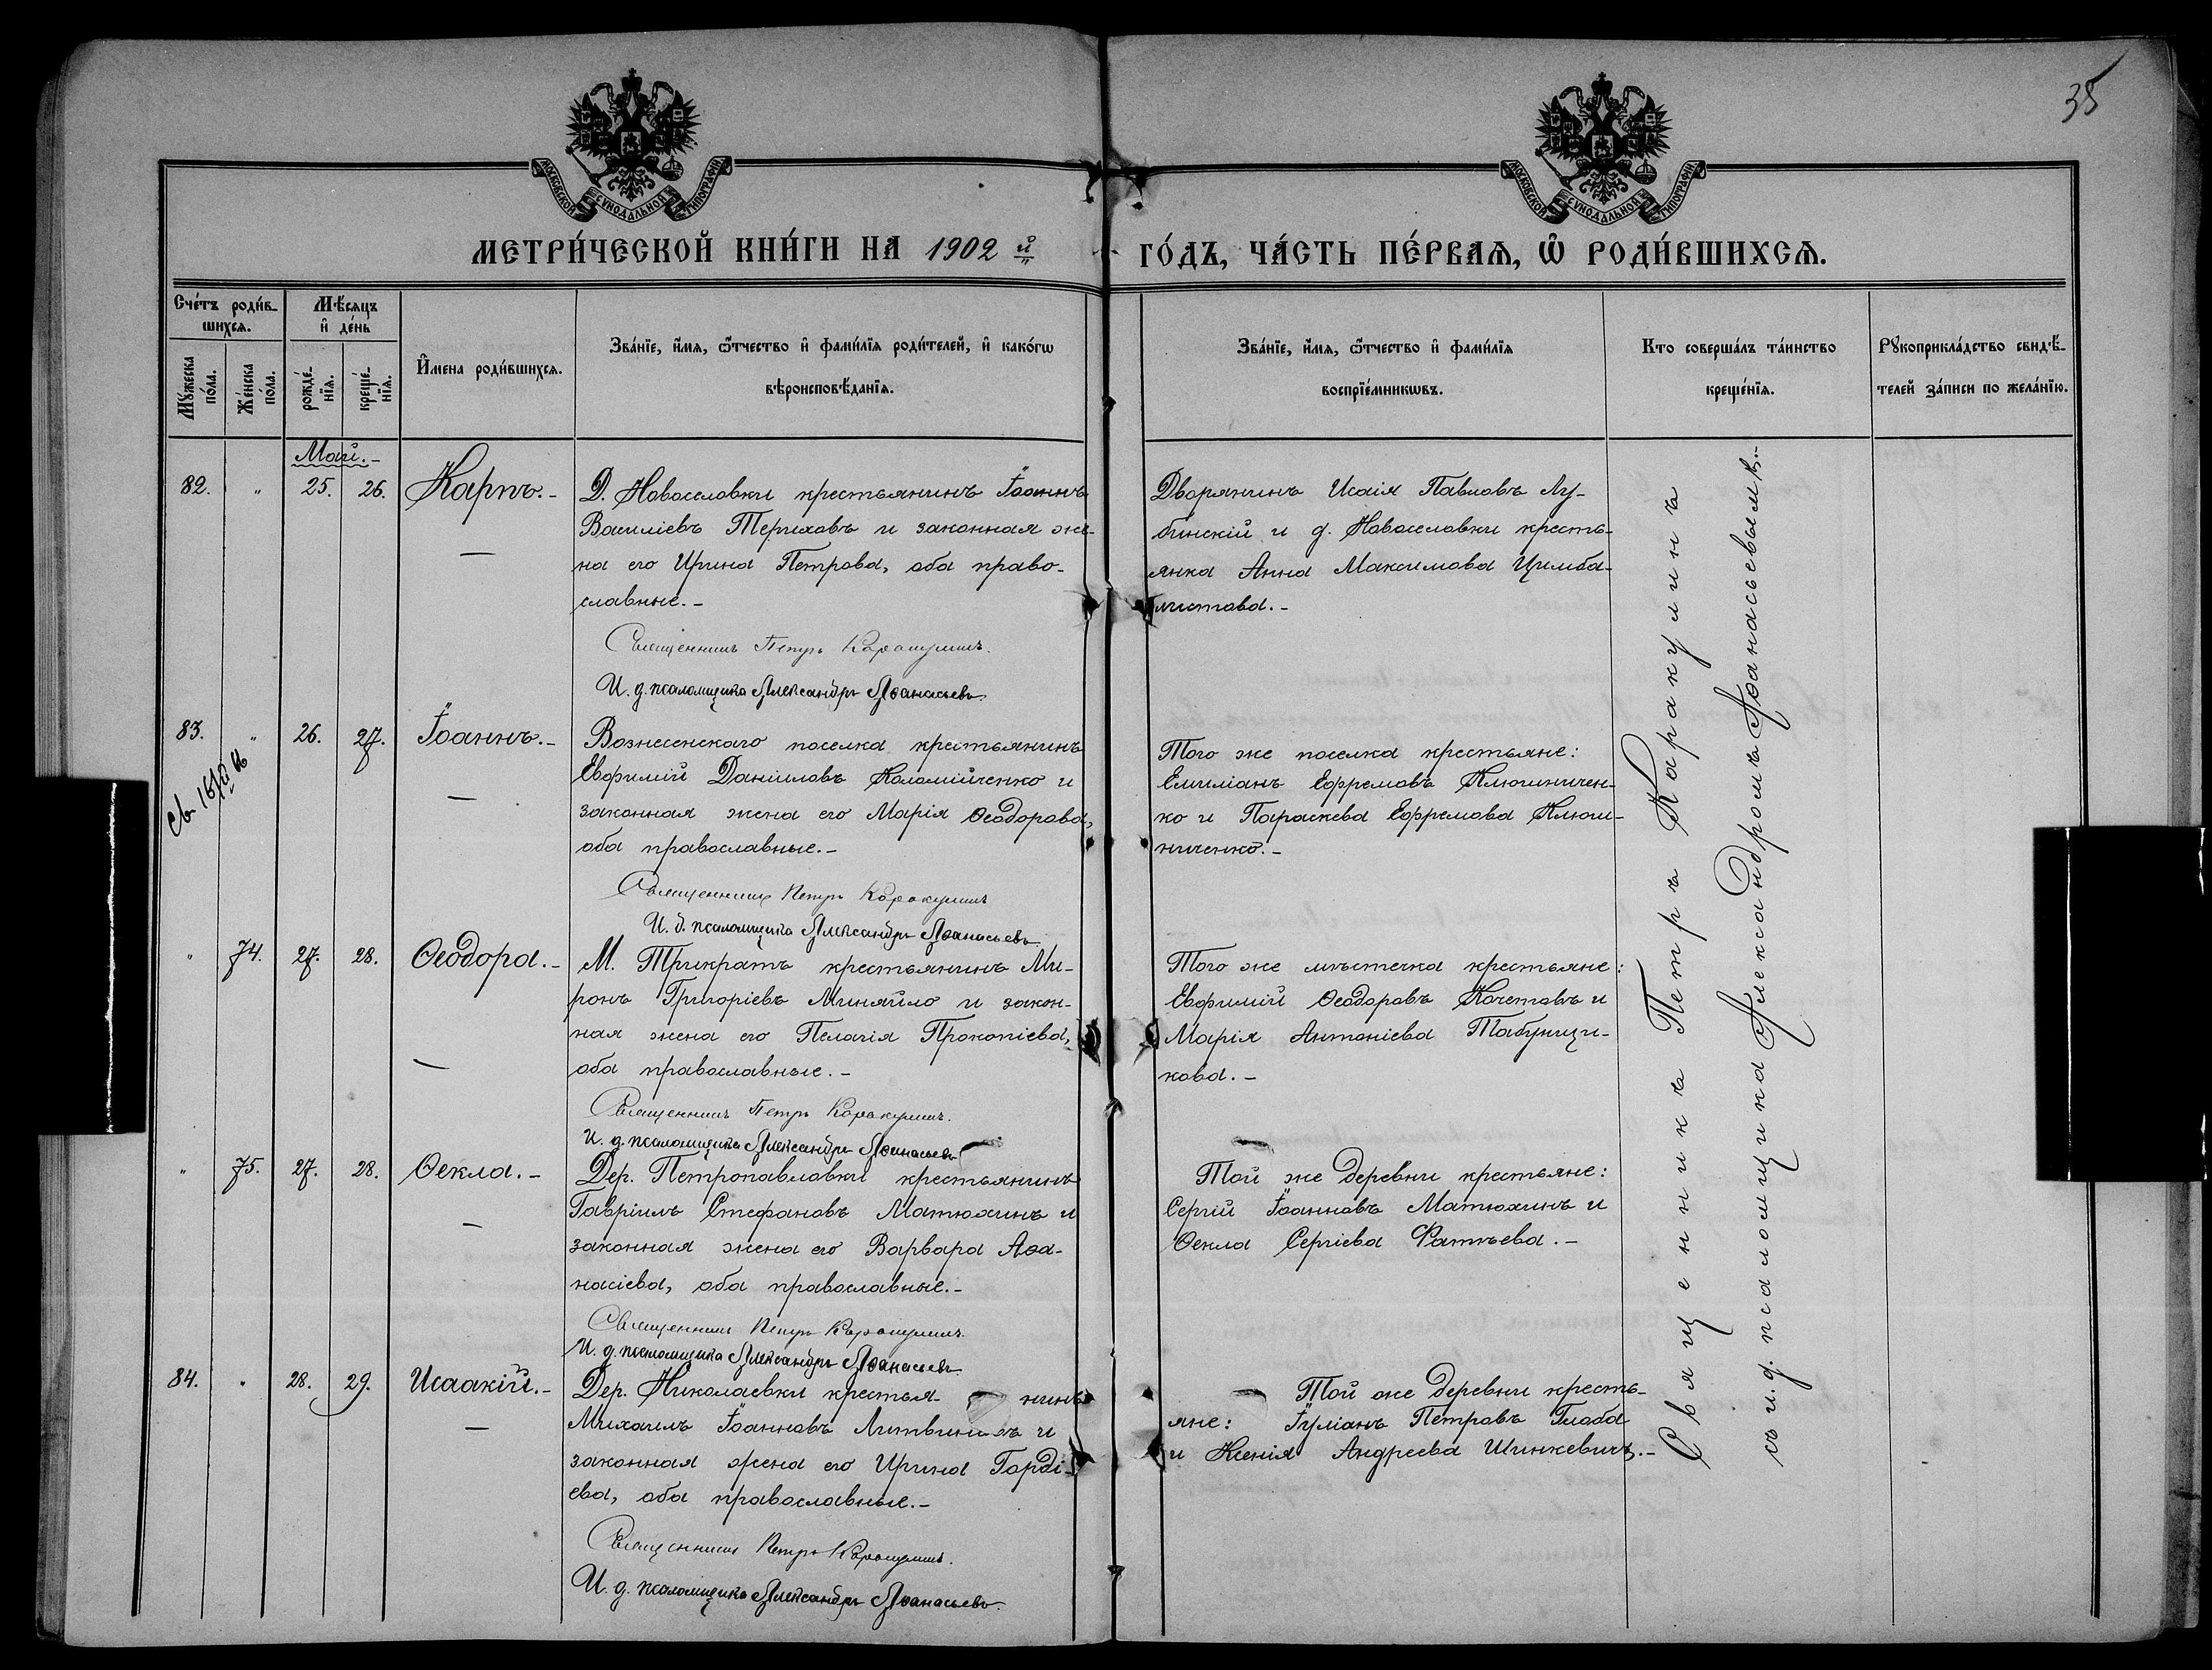 35
МОСКОВСКОЙ СУНОДАЛЬНОЙ ТИПОГРАФІИ
МОСКОВСКОЙ СУНОДАЛЬНОЙ ТИПОГРАФІИ
МЕТРИ́ЧЕСКОЙ КНИ́ГИ НА 1902 й
ГО́ДЪ, ЧА́СТЬ ПЕ́РВАѦ, Ѡ҆ РОДИ́ВШИХСѦ.
Сче́тъ роди́в-
шихсѧ.
Мꙋжеска по́ла.
Же́нска по́ла.
Мѣ́сѧцъ
и҆ де́нь
рожде́-
нїѧ.
креще́-
нїѧ.
И҆мена роди́вшихсѧ.
Зва́нїе, и҆́мѧ, ѻ҆́тчество и҆ фами́лїѧ роди́телей, и҆ како́гѡ
вѣроисповѣ́данїѧ.
Зва́нїе, и҆́мѧ, ѻ҆́тчество и҆ фами́лїѧ
воспрїе́мникѡвъ.
Кто соверша́лъ та́инство
креще́нїѧ.
Рꙋкоприкла́дство свидѣ́-
телей за́писи по жела́нїю.
Май.-
82. " 25. 26. Карпъ.-
Д. Новоселовки крестьянинъ Іоаннъ
Василіевъ Териховъ и законная же-
на его Ирина Петрова, оба право-
славные.-
Священникъ Петръ Каракулинъ.
И. д. псаломщика Александръ Аѳанасьевъ.
Дворянинъ Исаія Павловъ Лу-
бинскій и д. Новоселовки кресть-
янка Анна Максимова Цимба-
листова.-
83. " 26. 27. Іоаннъ.-
Вознесенскаго поселка крестьянинъ
Евфимій Даніиловъ Коломійченко и
законная жена его Марія Ѳеодорова,
оба православные.-
Священникъ Петръ Каракулинъ
И. д. псаломщика Александръ Аѳанасьевъ.
Того же поселка крестьяне:
Емиліанъ Ефремовъ Клюшничен-
ко и Параскева Ефремова Клюш-
ниченко.-
" 74. 27. 28. Ѳеодора.-
М. Трикратъ крестьянинъ Ми-
ронъ Григоріевъ Миняйло и закон-
ная жена его Пелагія Прокопіева,
оба православные.-
Священникъ Петръ Каракулинъ.
И. д. псаломщика Александръ Аѳанасьевъ
Того же мѣстечка крестьяне:
Евфимій Ѳеодоровъ Кочетовъ и
Марія Антоніева Табунщи-
кова.-
" 75. 27. 28. Ѳекла.-
Дер. Петропавловки крестьянинъ
Гавріилъ Стефановъ Матюхинъ и
законная жена его Варвара Аѳа-
насіева, оба православные.-
Священникъ Петръ Каракулинъ.
И. д. псаломщика Александръ Аѳанасьевъ
Той же деревни крестьяне:
Сергій Іоанновъ Матюхинъ и
Ѳекла Сергіева Фатѣева.-
84. " 28. 29. Исаакій.-
Дер. Николаевки крестья- нинъ
Михаилъ Іоанновъ Литвиновъ и
законная жена его Ирина Горді-
ева, оба православные.-
Священникъ Петръ Каракулинъ.
И. д. псаломщика Александръ Аѳанасьевъ.
Той же деревни кресть-
яне: Іуліанъ Петровъ Глоба
и Ксенія Андреева Шинкевичъ.-
Священникъ Петръ Каракулинъ
съ и.д. псаломщика Александромъ Аѳанасьевымъ.-